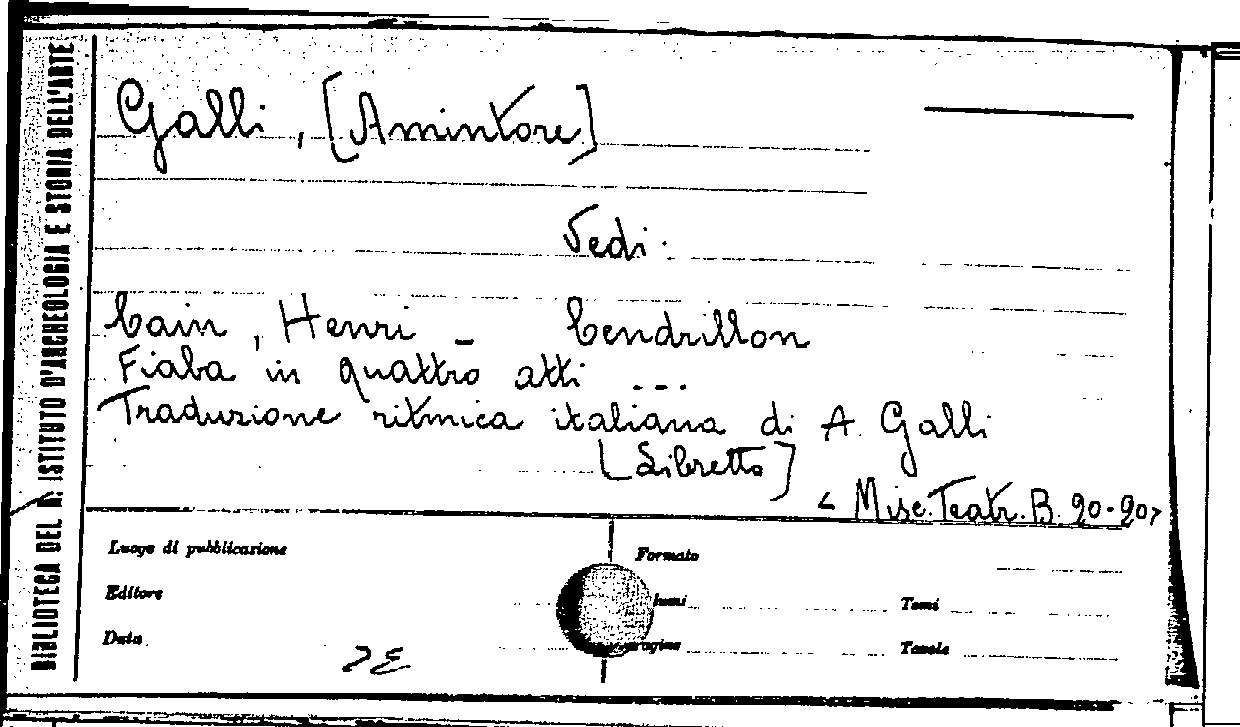 BIBLIOTECA DEL R. ISTITUTO D'ARCHEOLOGIA E STORIA DELL'ARTE
Galli, [Amintore]
Vedi:
Cain, Henri - Cendrillon
Fiaba in quattro atti ...
Traduzione ritmica italiana di A. Galli
[Libretto]
< Misc. Teatr. B. 20-20>
Luogo di pubblicazione
Formato
Editore
Tomi
Data
Tavole